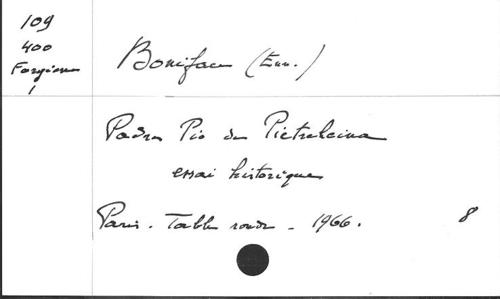 109
400
Forgione
1
Boniface (Enn.)
Padre Pio da Pietrelcina
essai historique
Paris - Table ronde - 1966.
8